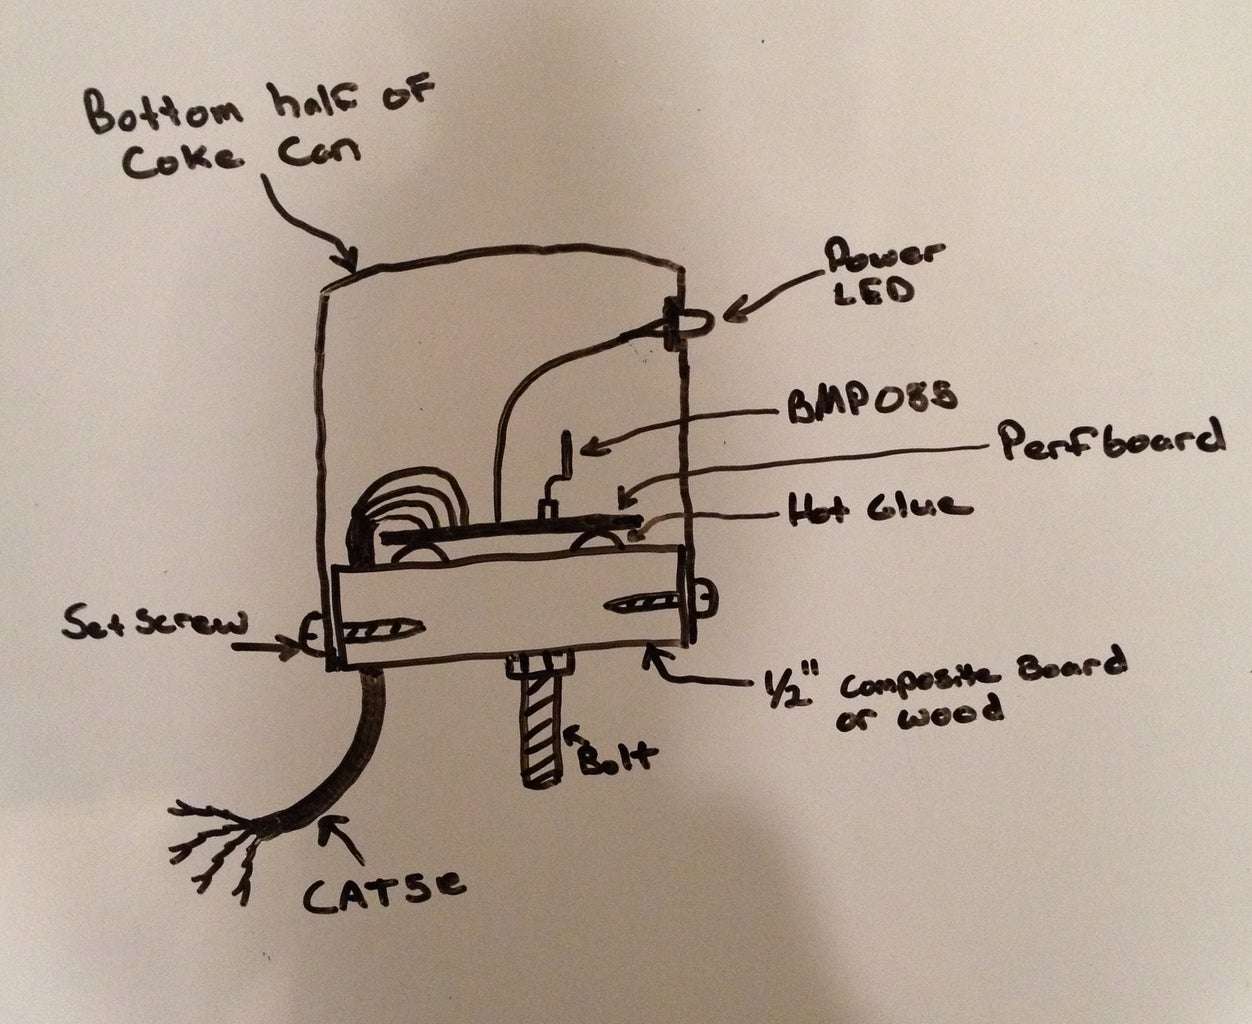 Bottom half of
Coke Can
Power
LED
BMP085
Perfboard
Hot Glue
Set Screw
1/2" Composite Board
or wood
Bolt
CAT5e